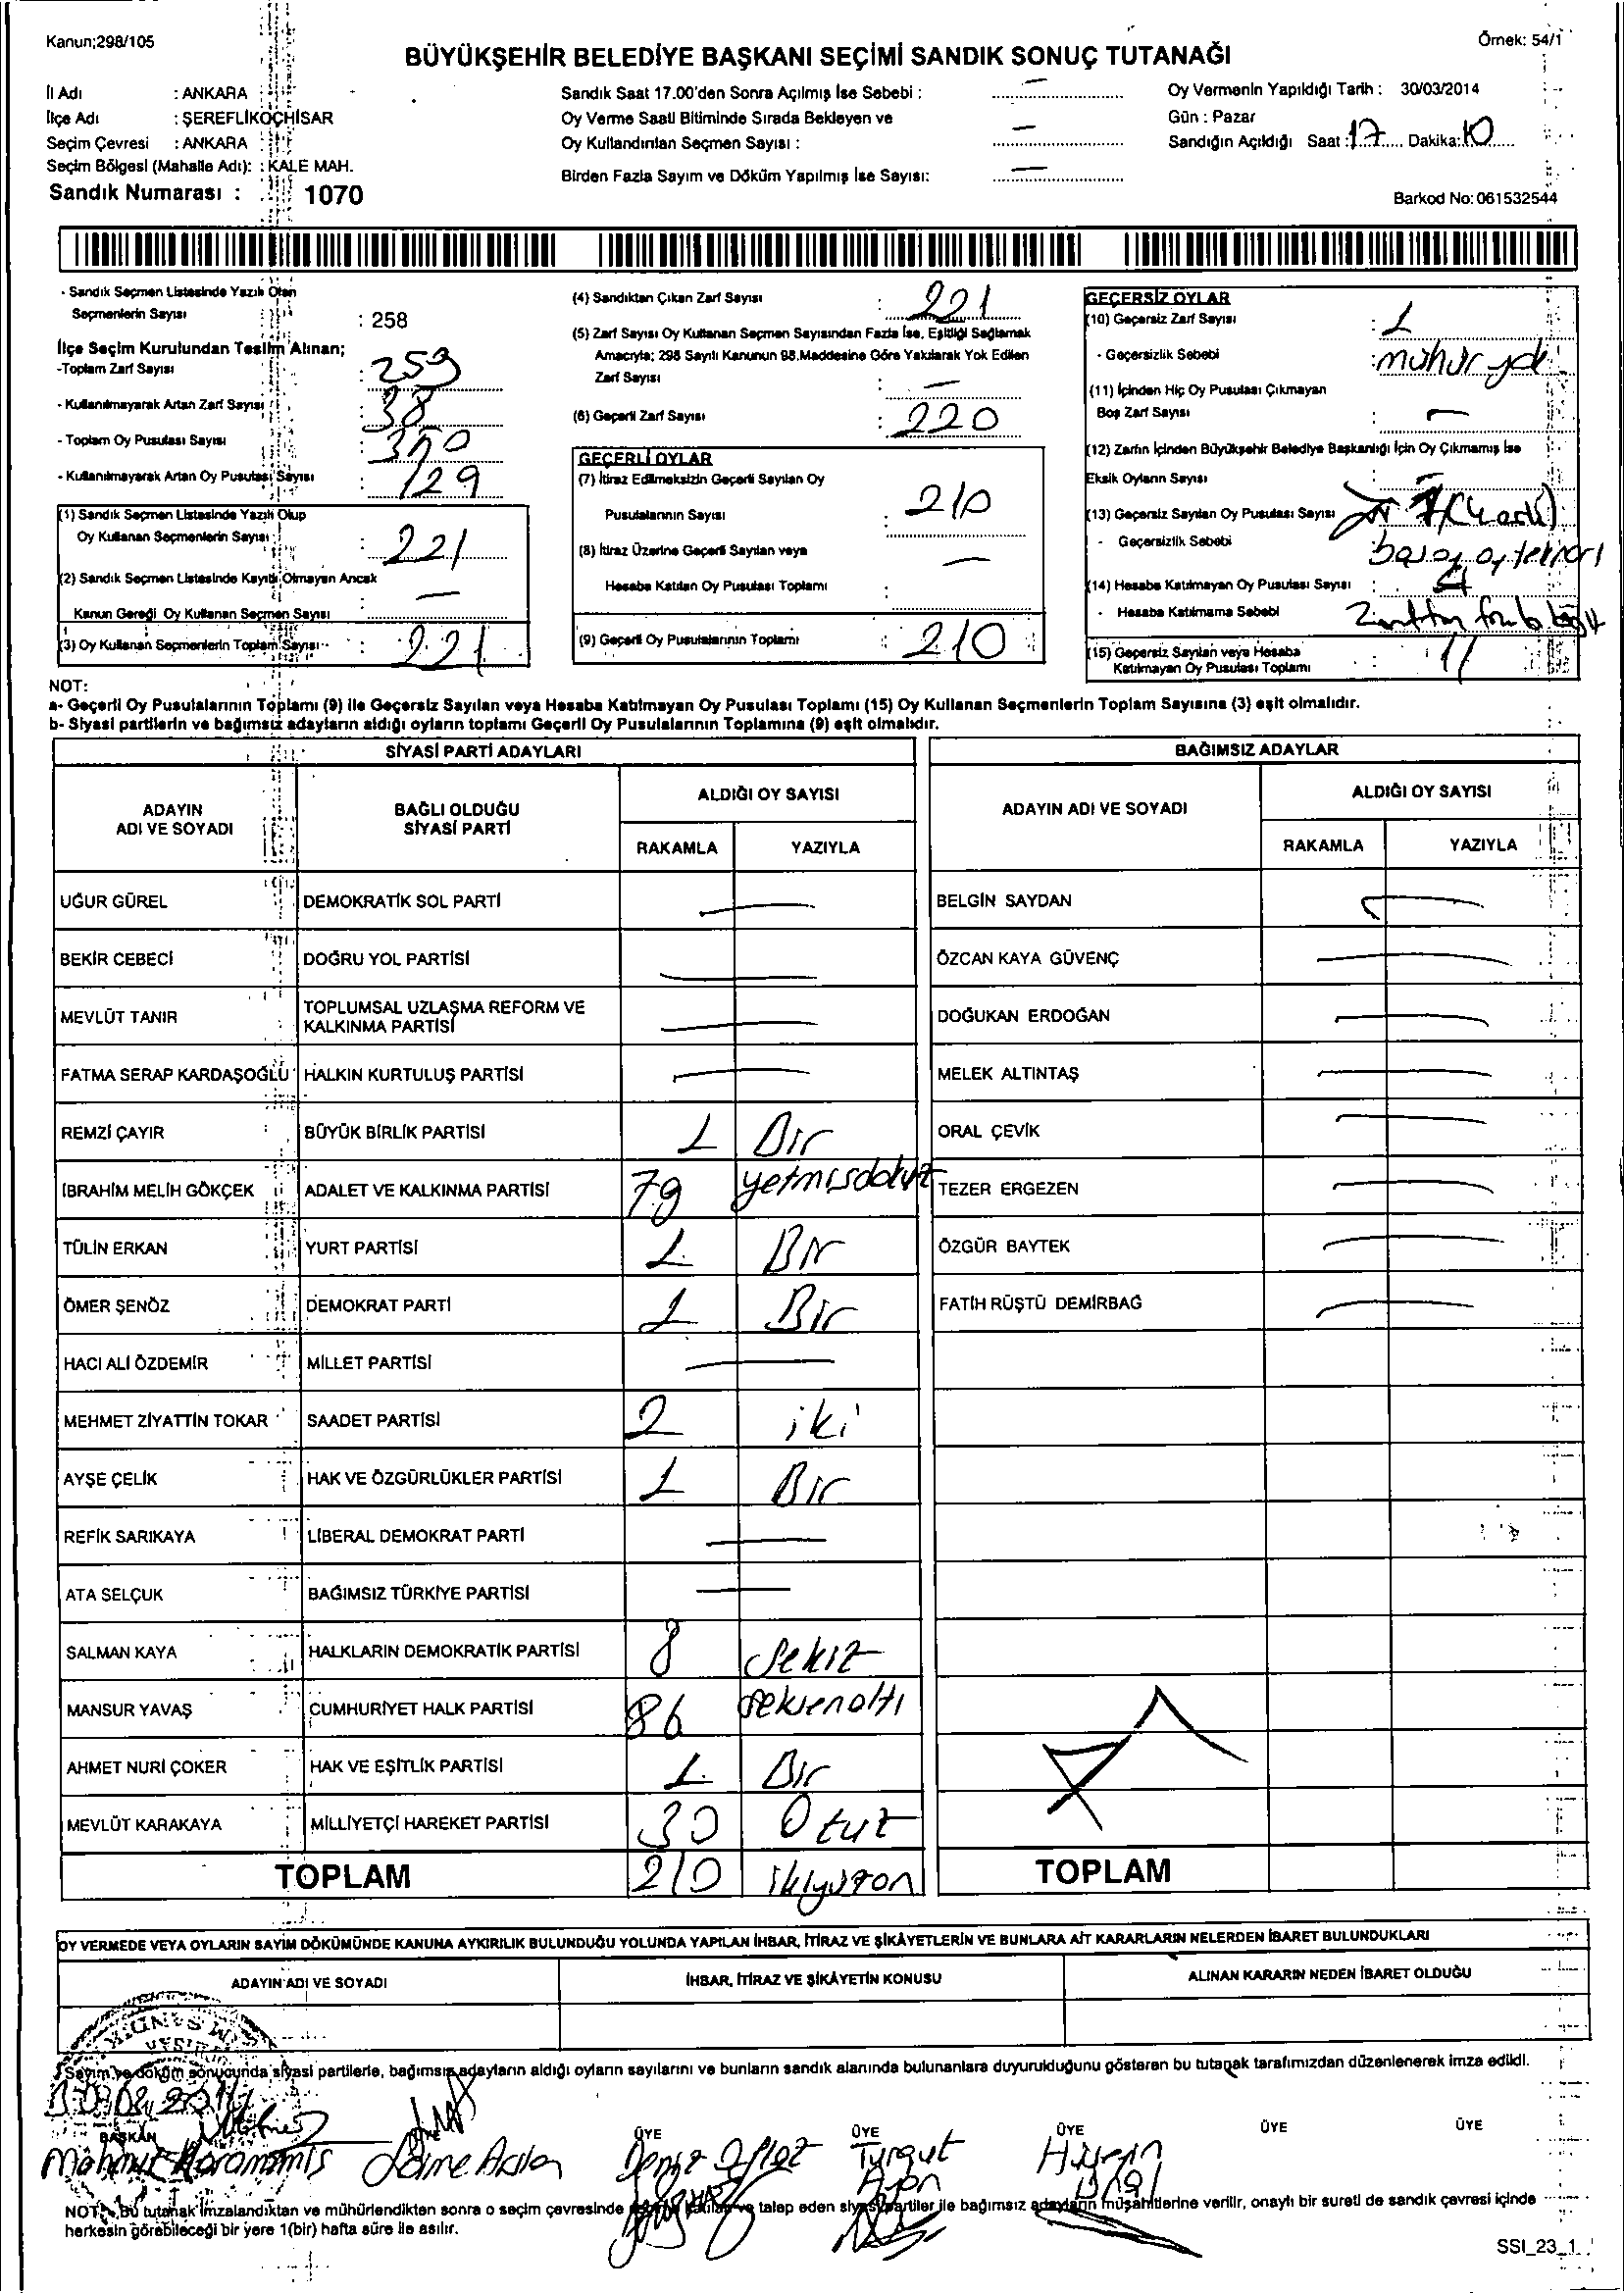 Kanun;298/105
Örnek: 54/1
BÜYÜKŞEHİR BELEDİYE BAŞKANI SEÇİMİ SANDIK SONUÇ TUTANAĞI
İl Adı : ANKARA
İlçe Adı : ŞEREFLİKOÇHİSAR
Seçim Çevresi : ANKARA
Seçim Bölgesi (Mahalle Adı): : KALE MAH.
Sandık Numarası : 1070
Sandık Saat 17.00'den Sonra Açılmış İse Sebebi : —
Oy Verme Saati Bitiminde Sırada Bekleyen ve
Oy Kullandırılan Seçmen Sayısı : —
Birden Fazla Sayım ve Döküm Yapılmış İse Sayısı: —
Oy Vermenin Yapıldığı Tarih : 30/03/2014
Gün : Pazar
Sandığın Açıldığı Saat : 17 Dakika: 10
Barkod No: 061532544
- Sandık Seçmen Listesinde Yazılı Olan
Seçmenlerin Sayısı : 258
İlçe Seçim Kurulundan Teslim Alınan;
-Toplam Zarf Sayısı : 259
- Kullanılmayarak Artan Zarf Sayısı : 38
- Toplam Oy Pusulası Sayısı : 350
- Kullanılmayarak Artan Oy Pusulası Sayısı : 129
(1) Sandık Seçmen Listesinde Yazılı Olup
Oy Kullanan Seçmenlerin Sayısı : 221
(2) Sandık Seçmen Listesinde Kayıtlı Olmayan Ancak
Kanun Gereği Oy Kullanan Seçmen Sayısı : —
(3) Oy Kullanan Seçmenlerin Toplam Sayısı : 221
(4) Sandıktan Çıkan Zarf Sayısı : 221
(5) Zarf Sayısı Oy Kullanan Seçmen Sayısından Fazla İse, Eşitliği Sağlamak
Amacıyla; 298 Sayılı Kanunun 98.Maddesine Göre Yakılarak Yok Edilen
Zarf Sayısı : —
(6) Geçerli Zarf Sayısı : 220
GEÇERLİ OYLAR
(7) İtiraz Edilmeksizin Geçerli Sayılan Oy
Pusulalarının Sayısı : 210
(8) İtiraz Üzerine Geçerli Sayılan veya
Hesaba Katılan Oy Pusulası Toplamı : —
(9) Geçerli Oy Pusulalarının Toplamı : 210
GEÇERSİZ OYLAR
(10) Geçersiz Zarf Sayısı : 1
- Geçersizlik Sebebi : mühür yok
(11) İçinden Hiç Oy Pusulası Çıkmayan
Boş Zarf Sayısı : —
(12) Zarfın İçinden Büyükşehir Belediye Başkanlığı İçin Oy Çıkmamış İse
Eksik Oyların Sayısı : —
(13) Geçersiz Sayılan Oy Pusulası Sayısı 7
- Geçersizlik Sebebi
(14) Hesaba Katılmayan Oy Pusulası Sayısı 4
- Hesaba Katılmama Sebebi
(15) Geçersiz Sayılan veya Hesaba
Katılmayan Oy Pusulası Toplamı : 11
NOT:
a- Geçerli Oy Pusulalarının Toplamı (9) ile Geçersiz Sayılan veya Hesaba Katılmayan Oy Pusulası Toplamı (15) Oy Kullanan Seçmenlerin Toplam Sayısına (3) eşit olmalıdır.
b- Siyasi partilerin ve bağımsız adayların aldığı oyların toplamı Geçerli Oy Pusulalarının Toplamına (9) eşit olmalıdır.
SİYASİ PARTİ ADAYLARI
BAĞIMSIZ ADAYLAR
ADAYIN ADI VE SOYADI
BAĞLI OLDUĞU SİYASİ PARTİ
ALDIĞI OY SAYISI
RAKAMLA YAZIYLA
ADAYIN ADI VE SOYADI
ALDIĞI OY SAYISI
RAKAMLA YAZIYLA
UĞUR GÜREL DEMOKRATİK SOL PARTİ — BELGİN SAYDAN —
BEKİR CEBECİ DOĞRU YOL PARTİSİ — ÖZCAN KAYA GÜVENÇ —
MEVLÜT TANIR TOPLUMSAL UZLAŞMA REFORM VE KALKINMA PARTİSİ — DOĞUKAN ERDOĞAN —
FATMA SERAP KARDAŞOĞLU HALKIN KURTULUŞ PARTİSİ — MELEK ALTINTAŞ —
REMZİ ÇAYIR BÜYÜK BİRLİK PARTİSİ 1 Bir ORAL ÇEVİK —
İBRAHİM MELİH GÖKÇEK ADALET VE KALKINMA PARTİSİ 79 yetmisdokuz TEZER ERGEZEN —
TÜLİN ERKAN YURT PARTİSİ 1 Bir ÖZGÜR BAYTEK —
ÖMER ŞENÖZ DEMOKRAT PARTİ 1 Bir FATİH RÜŞTÜ DEMİRBAĞ —
HACI ALİ ÖZDEMİR MİLLET PARTİSİ —
MEHMET ZİYATTİN TOKAR SAADET PARTİSİ 2 iki
AYŞE ÇELİK HAK VE ÖZGÜRLÜKLER PARTİSİ 1 Bir
REFİK SARIKAYA LİBERAL DEMOKRAT PARTİ —
ATA SELÇUK BAĞIMSIZ TÜRKİYE PARTİSİ —
SALMAN KAYA HALKLARIN DEMOKRATİK PARTİSİ 8 Sekiz
MANSUR YAVAŞ CUMHURİYET HALK PARTİSİ 86 seksenaltı
AHMET NURİ ÇOKER HAK VE EŞİTLİK PARTİSİ 1 Bir
MEVLÜT KARAKAYA MİLLİYETÇİ HAREKET PARTİSİ 30 Otuz
TOPLAM 210 ikiyüzon TOPLAM
OY VERMEDE VEYA OYLARIN SAYIM DÖKÜMÜNDE KANUNA AYKIRILIK BULUNDUĞU YOLUNDA YAPILAN İHBAR, İTİRAZ VE ŞİKÂYETLERİN VE BUNLARA AİT KARARLARIN NELERDEN İBARET BULUNDUKLARI
ADAYIN ADI VE SOYADI İHBAR, İTİRAZ VE ŞİKÂYETİN KONUSU ALINAN KARARIN NEDEN İBARET OLDUĞU
Sayım ve döküm sonucunda siyasi partilerle, bağımsız adayların aldığı oyların sayılarını ve bunların sandık alanında bulunanlara duyurulduğunu gösteren bu tutanak tarafımızdan düzenlenerek imza edildi.
BAŞKAN ÜYE ÜYE ÜYE ÜYE ÜYE
Mahmut Deniz Turgut
NOT: Bu tutanak imzalandıktan ve mühürlendikten sonra o seçim çevresinde talep eden siyasi partiler ile bağımsız adayların müşahitlerine verilir, onaylı bir sureti de sandık çevresi içinde
herkesin görebileceği bir yere 1(bir) hafta süre ile asılır.
SSI_23_1